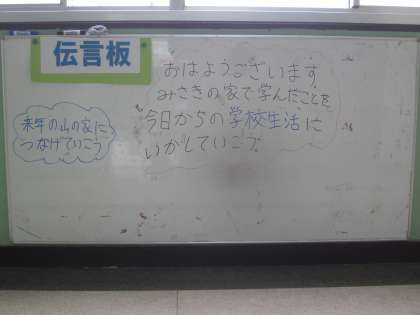 伝言板
おはようございます。
みさきの家で学んだことを
今日からの学校生活に
いかしていこう
来年の山の家に
つなげていこう